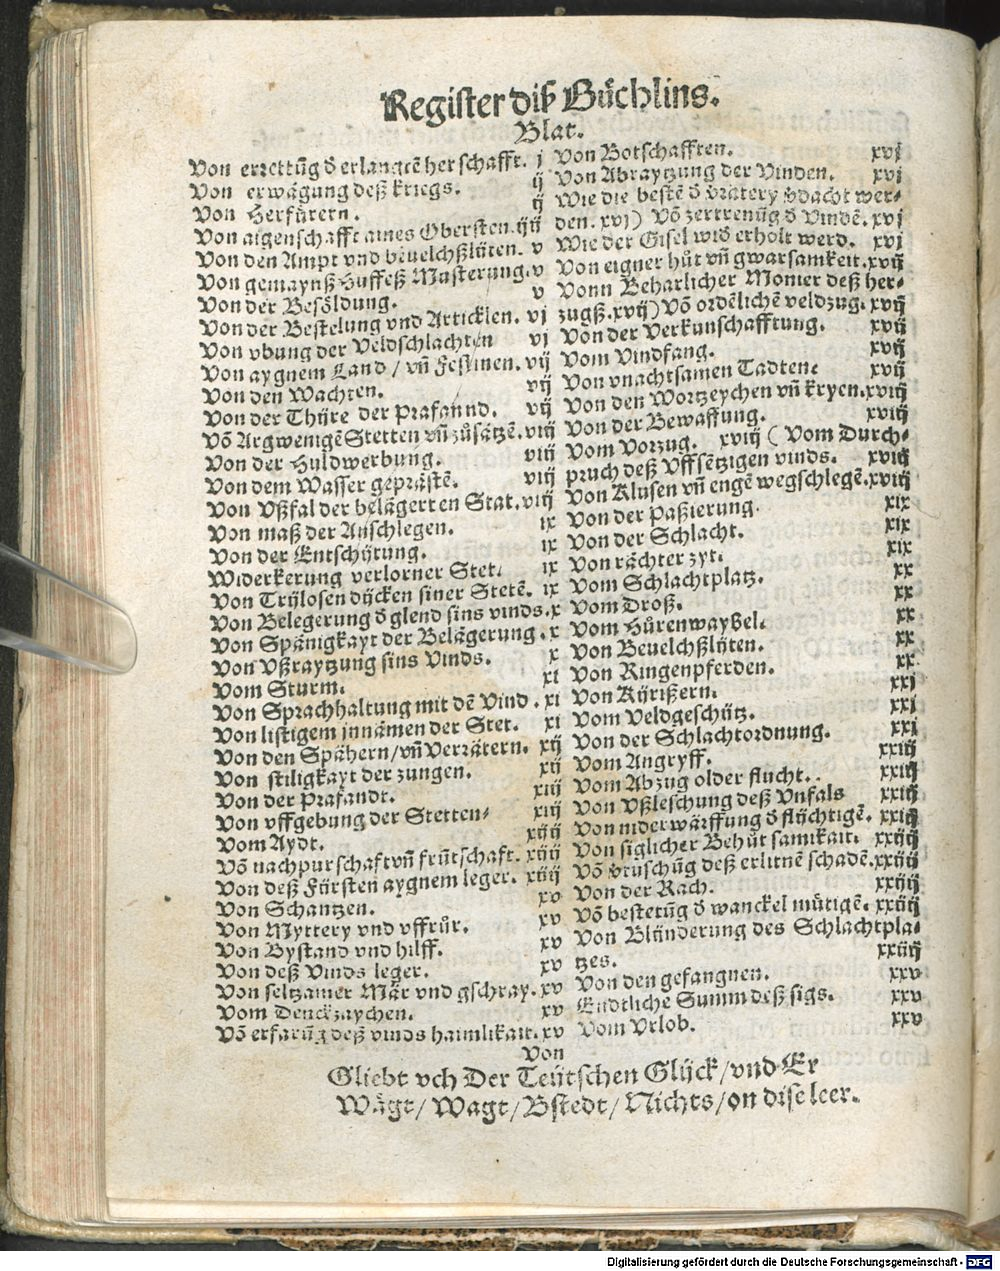 Register diß Bůchlins.
Blat.
Von errettũg d̄ erlangtẽ herschafft. j
Von erwägung deß kriegs. ij
Von Herfürern. ij
Von aigenschafft aines Obersten. iij
Von den Ampt vnd beuelchßlüten. v
Von gemaynß Huffeß Musterung. v
Von der Besöldung. v
Von der Bestelung vnd Articklen. vj
Von vbung der Veldschlachten vj
Von aygnem Land / vñ Festinen. vij
Von den Wachten. vij
Von der Thüre der Prafannd. vij
Võ Argwenigẽ Stetten vñ zůsätzẽ. viij
Von der Huldwerbung. viij
Von dem Wasser geprästẽ. viij
Von Vßfal der belägerten Stat. viij
Von maß der Anschlegen. ix
Von der Entschỹtung. ix
Widerkerung verlorner Stet. ix
Von Trÿlosen dücken siner Stetẽ. ix
Von Belegerung d̄ glend sins vinds. x
Von Spänigkayt der Belägerung. x
Von Vßraytzung sins Vinds. x
Vom Sturm. xi
Von Sprachhaltung mit dẽ Vind. xi
Von listigem innämen der Stet. xi
Von den Spähern / vñ Verrätern. xij
Von stiligkayt der zungen. xij
Von der Prafandt. xiij
Von vffgebung der Stetten. xiij
Vom Aydt. xiiij
Võ nachpurschaft vñ frũtschaft. xiiij
Von deß Fürsten aygnem leger. xiiij
Von Schantzen. xv
Von Myttery vnd vffrůr. xv
Von Bystand vnd hilff. xv
Von deß Vinds leger. xv
Von seltzamer Mär vnd gschray. xv
Vom Denckzaychen. xv
Võ erfarũg deß vinds haimlikait. xv
Von
Von Botschafften. xvj
Von Abraytzung der Vinden. xvj
Wie die bestẽ d̄ vrätery vdacht wer-
den. xvj) Võ zertrenũg d̄ Vindẽ. xvj
Wie der Gisel wid̄ erholt werd. xvj
Von eigner hůt vñ gwarsamkeit. xvij
Vonn Beharlicher Monier deß her-
zugß. xvij) Võ ordẽlichẽ veldzug. xvij
Von der Verkunschafftung. xvij
Vom Vindfang. xvij
Von vnachtsamen Tadten. xvij
Von den Wortzeychen vñ kryen. xviij
Von der Bewaffung. xviij
Vom Vorzug. xviij ( Vom Durch-
pruch deß Vffsẽtzigen vinds. xviij
Von Klusen vñ engẽ wegschlegẽ. xviij
Von der Paßierung. xix
Von der Schlacht. xix
Von rächter zyt. xix
Vom Schlachtplatz. xx
Vom Droß. xx
Vom Hůrenwaybel. xx
Von Beuelchßlüten. xx
Von Ringenpferden. xx
Von Kÿrißern. xxj
Vom Veldgeschütz. xxj
Von der Schlachtordnung. xxj
Vom Angryff. xxiij
Vom Abzug older flucht. xxiij
Von Vßleschung deß Vnfals xxiij
Von niderwärffung d̄ flÿchtigẽ. xxiij
Von siglicher Behůtsamkait. xxiij
Võ vtuschũg deß erlitnẽ schadẽ. xxiiij
Von der Rach. xxiiij
Võ bestetũg d̄ wanckel můtigẽ. xxiiij
Von Blünderung des Schlachtpla-
tzes. xxiiij
Von den gefangnen. xxv
Endtliche Summ deß sigs. xxv
Vom Vrlob. xxv
Gliebt vch Der Teütschen Glück / vnd Er
Wägt / Wagt / Bstedt / Nichts / on dise leer.
Digitalisierung gefördert durch die Deutsche Forschungsgemeinschaft - DFG